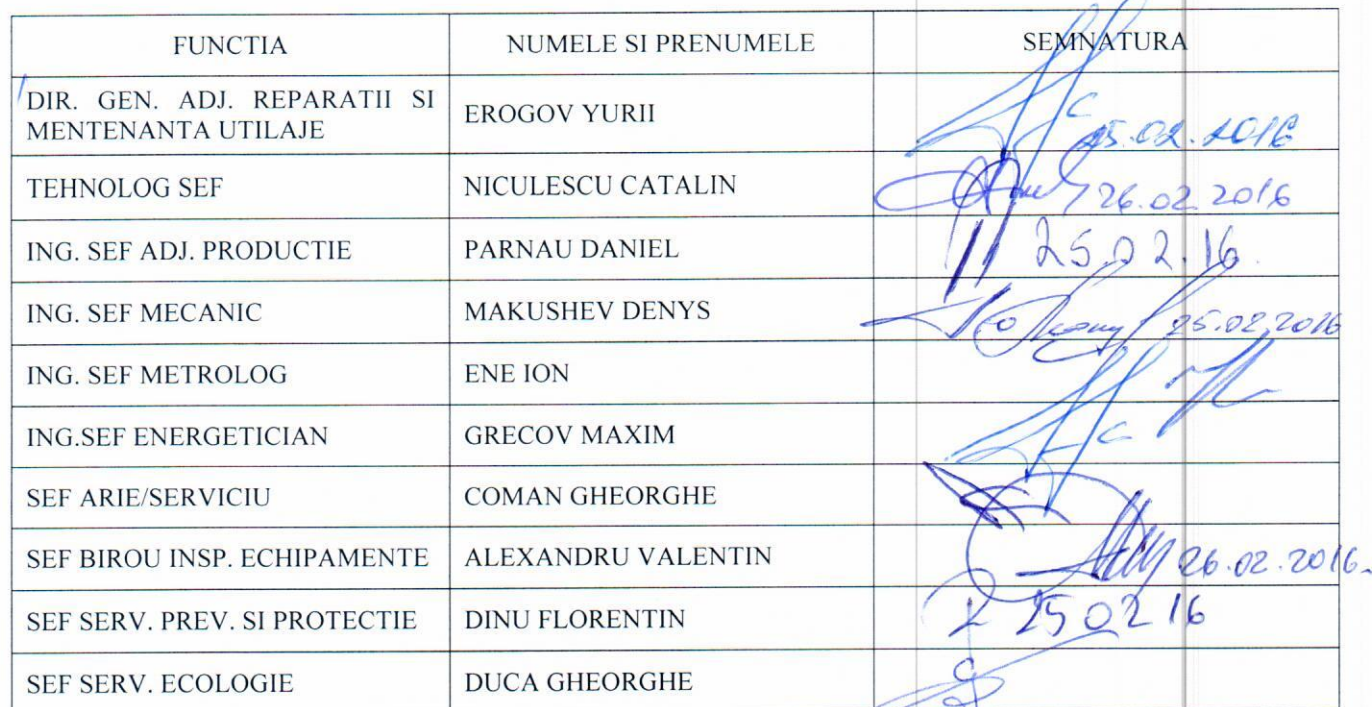 FUNCTIA NUMELE SI PRENUMELE SEMNATURA
DIR. GEN. ADJ. REPARATII SI
MENTENANTA UTILAJE
EROGOV YURII 25.02.2016
TEHNOLOG SEF NICULESCU CATALIN 26.02.2016
ING. SEF ADJ. PRODUCTIE PARNAU DANIEL 25.02.16
ING. SEF MECANIC MAKUSHEV DENYS 25.02.2016
ING. SEF METROLOG ENE ION
ING.SEF ENERGETICIAN GRECOV MAXIM
SEF ARIE/SERVICIU COMAN GHEORGHE
SEF BIROU INSP. ECHIPAMENTE ALEXANDRU VALENTIN 26.02.2016
SEF SERV. PREV. SI PROTECTIE DINU FLORENTIN 25 02 16
SEF SERV. ECOLOGIE DUCA GHEORGHE